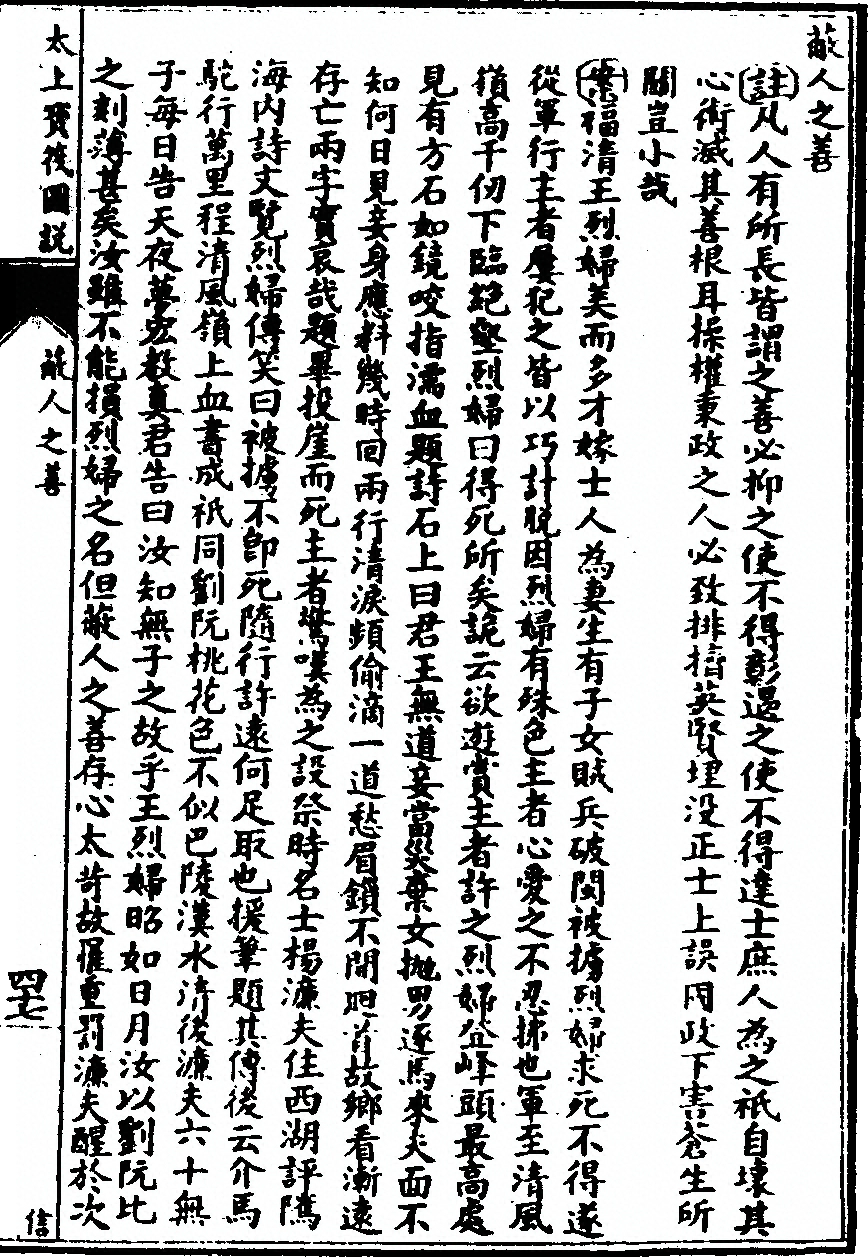 蔽人之善
註凡人有所長皆謂之善必抑之使不得彰遏之使不得達士庶人為之祇自壞其
心術滅其善根耳操權秉政之人必致排擠英賢埋沒正士上誤國政下害蒼生所
關豈小哉
案福清王烈婦美而多才嫁士人為妻生有子女賊兵破閩被擄烈婦求死不得遂
從軍行主者屢犯之皆以巧計脫因烈婦有殊色主者心愛之不忍拂也軍至清風
嶺高千仞下臨絕壑烈婦曰得死所矣詭云欲遊賞主者許之烈婦登峰頭最高處
見有方石如鏡咬指濡血題詩石上曰君王無道妾當災棄女拋男逐馬來夫面不
知何日見妾身應料幾時回兩行清淚頻偷滴一道愁眉鎖不開迴首故鄉看漸遠
存亡兩字實哀哉題畢投崖而死主者驚嘆為之設祭時名士楊濂夫住西湖評隲
海內詩文覽烈婦傳笑曰被擄不即死隨行許遠何足取也援筆題其傳後云介馬
駝行萬里程清風嶺上血書成祇同劉阮桃花色不似巴陵漢水清後濂夫六十無
子每日告天夜夢宏教真君告曰汝知無子之故乎王烈婦昭如日月汝以劉阮比
之刻薄甚矣汝雖不能損烈婦之名但蔽人之善存心太苛故罹重罰濂夫醒於次
太上寶筏圖說
蔽人之善
四七
信